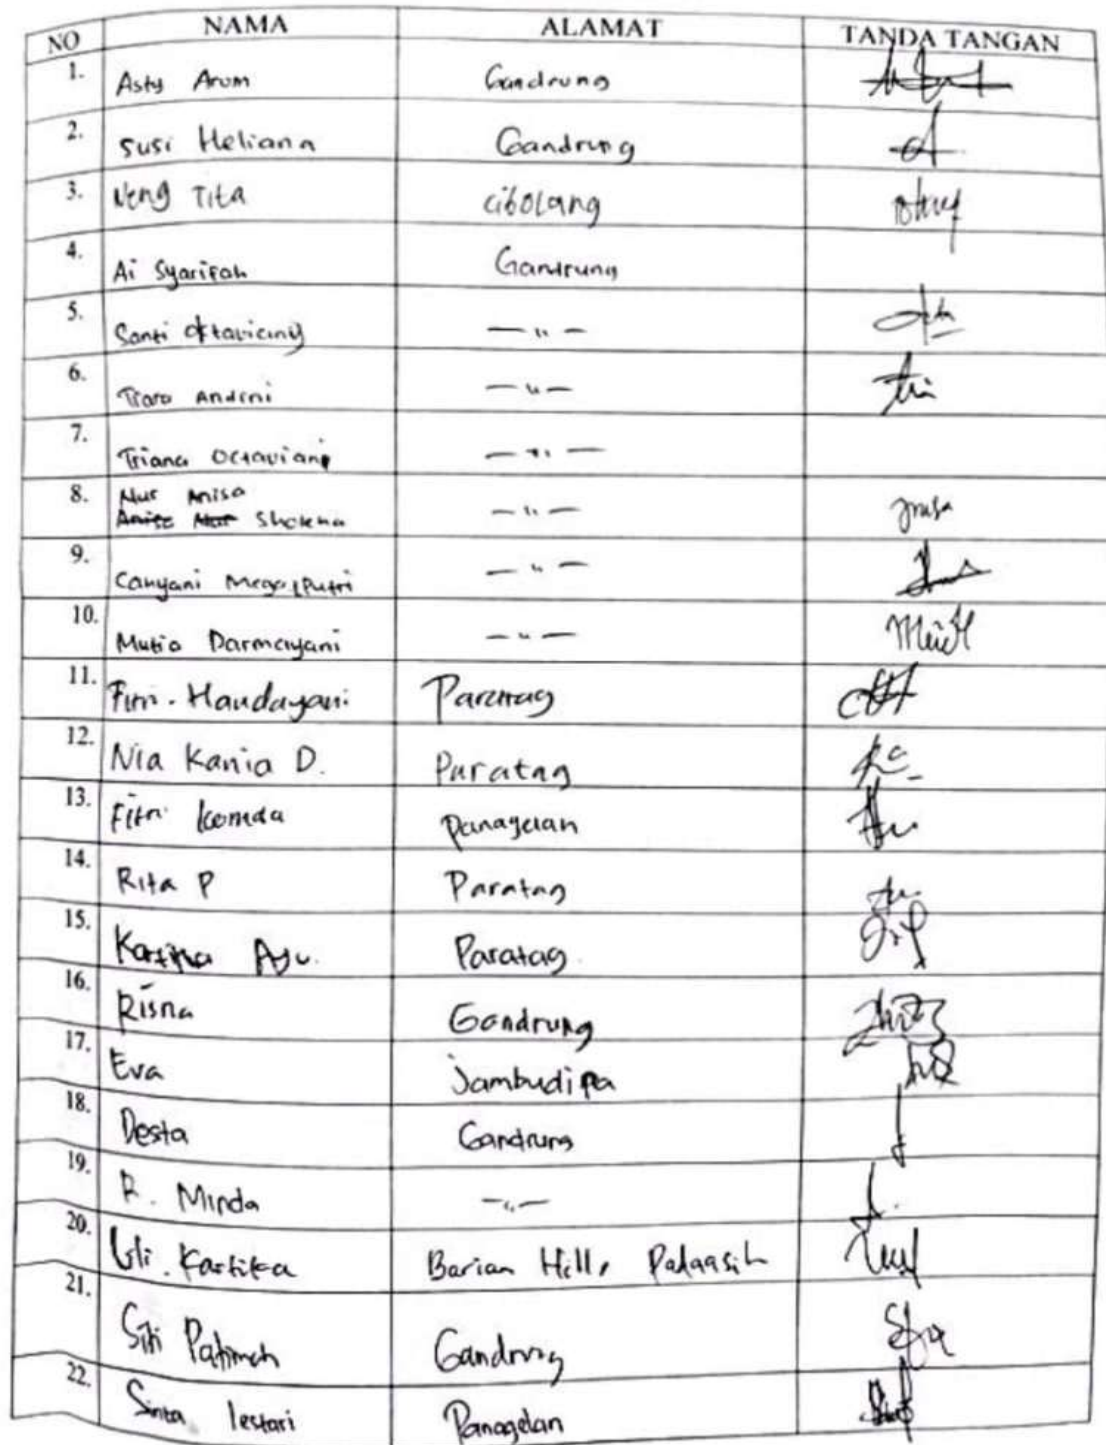 NO NAMA ALAMAT TANDA TANGAN
1. Asty Arum Gandrung
2. Susi Heliana Gandrung
3. Neng Tita cibolang
4. Ai Syarifah Gandrung
5. Santi Oktaviany — " —
6. Tiara Andini — " —
7. Triana Octaviani — " —
8. Nur Anisa
Anisa Nur Sholeha — " —
9. Cahyani Mega Putri — " —
10. Mutia Darmayani — " —
11. Fitri. Handayani Paratag
12. Nia Kania D. Paratag
13. Fitri Panagelan
14. Rita P Paratag
15. Kartika Ayu. Paratag
16. Risna Gandrung
17. Eva Jambudipa
18. Desta Gandrung
19. R. Minda — " —
20. Uli. Kartika Barian Hill, Padaasih
21. Siti Patimah Gandrung
22. Sinta lestari Panagelan